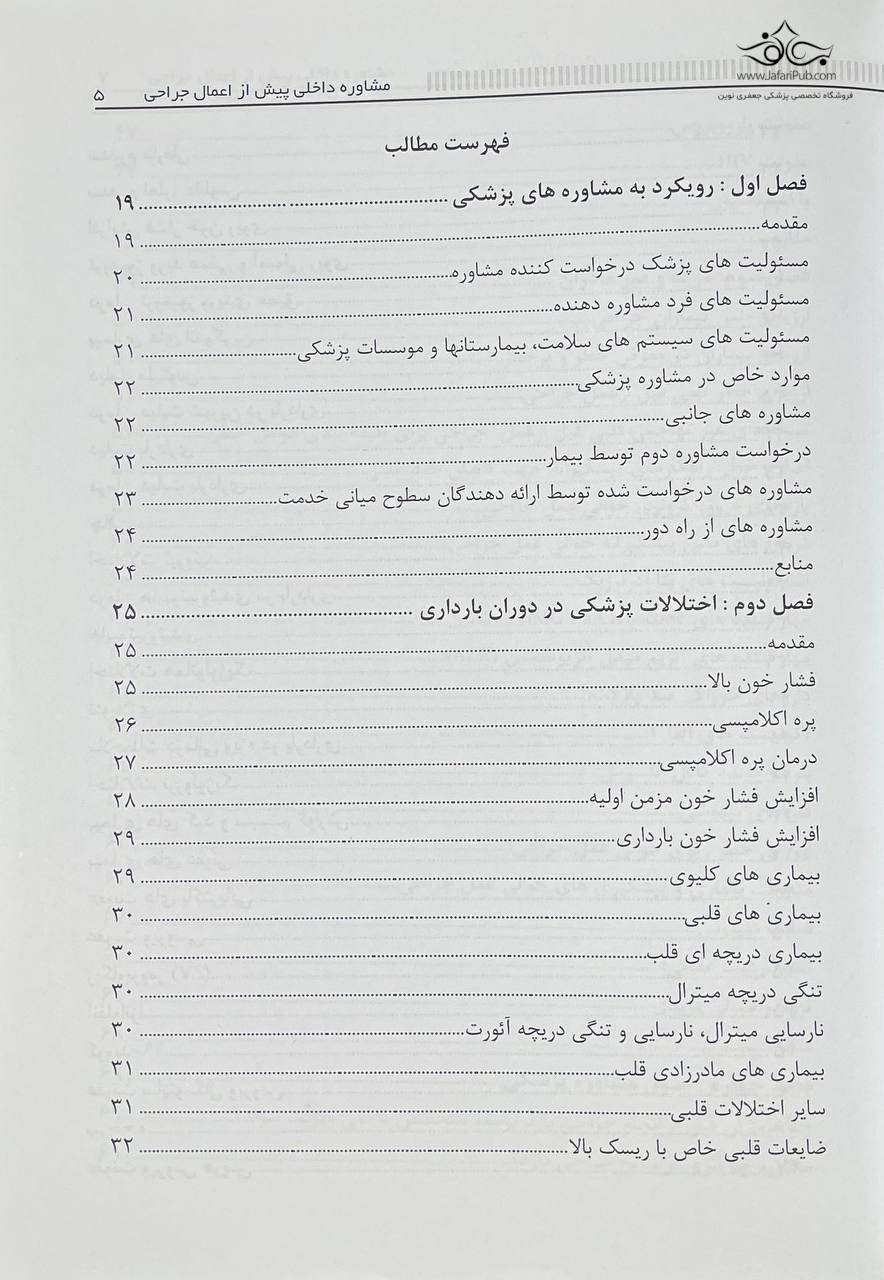 www.JafariPub.com
فروشگاه تخصصی پزشکی جعفری نوین
مشاوره داخلی پیش از اعمال جراحی ۵
فهرست مطالب
فصل اول : رویکرد به مشاوره های پزشکی ........ ۱۹
مقدمه ........ ۱۹
مسئولیت های پزشک درخواست کننده مشاوره ........ ۲۰
مسئولیت های فرد مشاوره دهنده ........ ۲۱
مسئولیت های سیستم های سلامت، بیمارستانها و موسسات پزشکی ........ ۲۱
موارد خاص در مشاوره پزشکی ........ ۲۲
مشاوره های جانبی ........ ۲۲
درخواست مشاوره دوم توسط بیمار ........ ۲۲
مشاوره های درخواست شده توسط ارائه دهندگان سطوح میانی خدمت ........ ۲۳
مشاوره های از راه دور ........ ۲۴
منابع ........ ۲۴
فصل دوم : اختلالات پزشکی در دوران بارداری ........ ۲۵
مقدمه ........ ۲۵
فشار خون بالا ........ ۲۵
پره اکلامپسی ........ ۲۶
درمان پره اکلامپسی ........ ۲۷
افزایش فشار خون مزمن اولیه ........ ۲۸
افزایش فشار خون بارداری ........ ۲۹
بیماری های کلیوی ........ ۲۹
بیماری های قلبی ........ ۳۰
بیماری دریچه ای قلب ........ ۳۰
تنگی دریچه میترال ........ ۳۰
نارسایی میترال، نارسایی و تنگی دریچه آئورت ........ ۳۰
بیماری های مادرزادی قلب ........ ۳۱
سایر اختلالات قلبی ........ ۳۱
ضایعات قلبی خاص با ریسک بالا ........ ۳۲